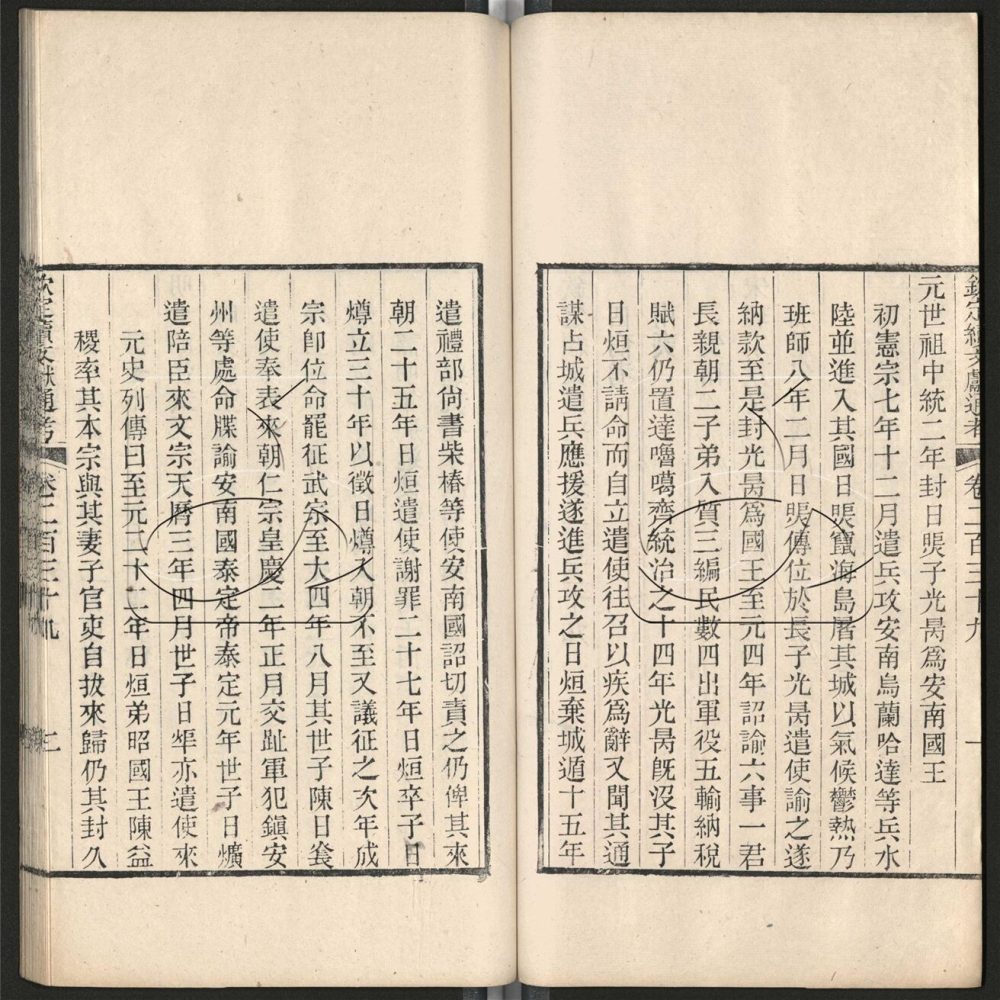 欽定續文獻通考 卷二百三十九 一
元世祖中統二年封日煚子光昺爲安南國王
初憲宗七年十二月遣兵攻安南烏蘭哈達等兵水
陸並進入其國日煚竄海島屠其城以氣候鬱熱乃
班師八年二月日煚傳位於長子光昺遣使諭之遂
納款至是封光昺爲國王至元四年詔諭六事一君
長親朝二子弟入質三編民數四出軍役五輸納稅
賦六仍置達嚕噶齊統治之十四年光昺旣沒其子
日烜不請命而自立遣使往召以疾爲辭又聞其通
謀占城遣兵應援遂進兵攻之日烜棄城遁十五年
遣禮部尙書柴椿等使安南國詔切責之仍俾其來
朝二十五年日烜遣使謝罪二十七年日烜卒子日
燇立三十年以徵日燇入朝不至又議征之次年成
宗卽位命罷征武宗至大四年八月其世子陳日㷃
遣使奉表來朝仁宗皇慶二年正月交趾軍犯鎭安
州等處命牒諭安南國泰定帝泰定元年世子日爌
遣陪臣來文宗天曆三年四月世子日㷆亦遣使來
元史列傳曰至元二十二年日烜弟昭國王陳益
稷率其本宗與其妻子官吏自拔來歸仍其封久
欽定續文獻通考 卷二百三十九